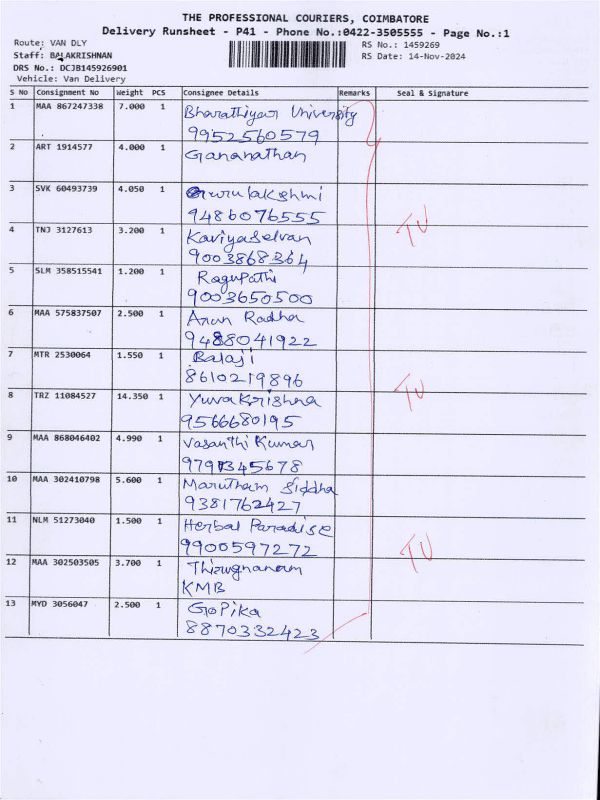 THE PROFESSIONAL COURIERS, COIMBATORE
Delivery Runsheet - P41 - Phone No.:0422-3505555 - Page No.:1
Route: VAN DLY RS No.: 1459269
Staff: BALAKRISHNAN RS Date: 14-Nov-2024
DRS No.: DCJB145926901
Vehicle: Van Delivery
S No Consignment No Weight PCS Consignee Details Remarks Seal & Signature
1 MAA 867247338 7.000 1 Bharathiyar University
9952560579
2 ART 1914577 4.000 1 Gananathan
3 SVK 60493739 4.050 1 Gurulakshmi
9486076555
TV
4 TNJ 3127613 3.200 1 Kaviyaselvan
9003868364
5 SLM 358515541 1.200 1 Ragupathi
9003650500
6 MAA 575837507 2.500 1 Arun Radha
9488041922
7 MTR 2530064 1.550 1 Balaji
8610219896
TV
8 TRZ 11084527 14.350 1 Yuvakrishna
9566680195
9 MAA 868046402 4.990 1 Vasanthi Kumar
9791345678
10 MAA 302410798 5.600 1 Marutham Siddha
9381762427
11 NLM 51273040 1.500 1 Herbal Paradise
9900597272
TV
12 MAA 302503505 3.700 1 Thirugnanam
KMB
13 MYD 3056047 2.500 1 GoPika
8870332423